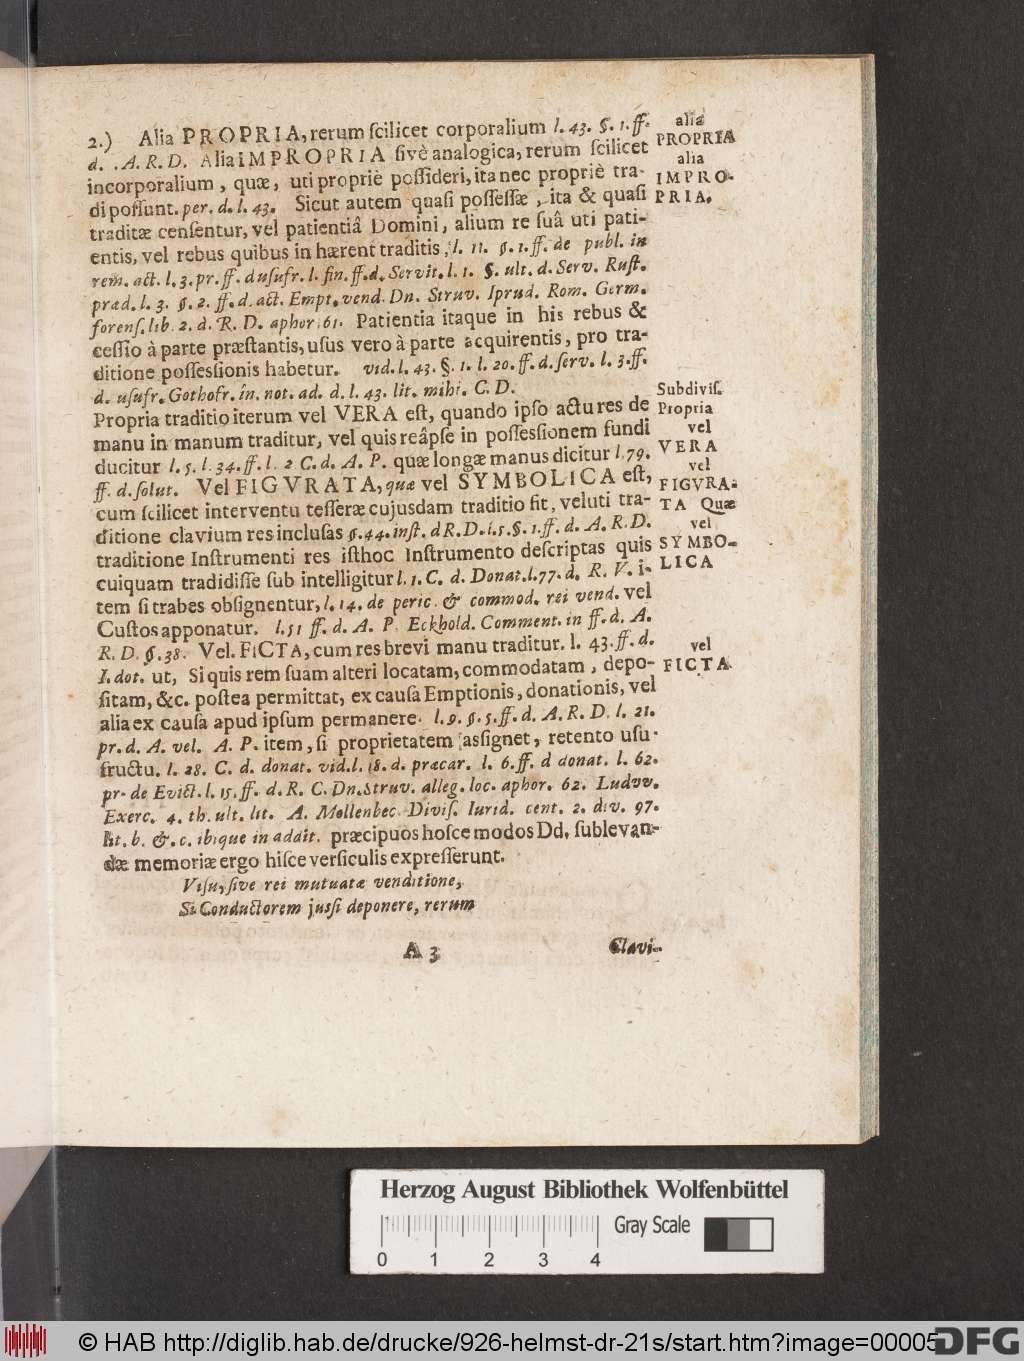 2.) Alia PROPRIA, rerum ſcilicet corporalium l. 43. §. 1. ff.
d. A. R. D. Alia IMPROPRIA ſivè analogica, rerum ſcilicet
incorporalium, quæ, uti propriè poſſideri, ita nec propriè tra-
di poſſunt. per. d. l. 43. Sicut autem quaſi poſſeſſæ, ita & quaſi
traditæ cenſentur, vel patientiâ Domini, alium re ſuâ uti pati-
entis, vel rebus quibus in hærent traditis, l. 11. §. 1. ff. de publ. in
rem. act. l. 3. pr. ff. d uſufr. l. fin. ff. d. Servit. l. 1. §. ult. d. Serv. Ruſt.
præd. l. 3. §. 2. ff. d. act. Empt. vend. Dn. Struv. Iprud. Rom. Germ.
forenſ. lib. 2. d. R. D. aphor. 61. Patientia itaque in his rebus &
ceſſio à parte præſtantis, uſus vero à parte acquirentis, pro tra-
ditione poſſesſionis habetur. vid. l. 43. §. 1. l. 20. ff. d. ſerv. l. 3. ff.
d. uſufr. Gothofr. in. not. ad. d. l. 43. lit. mihi. C. D.
Propria traditio iterum vel VERA eſt, quando ipſo actu res de
manu in manum traditur, vel quis reâpſe in poſſesſionem fundi
ducitur l. 5. l. 34. ff. l. 2 C. d. A. P. quæ longæ manus dicitur l. 79.
ff. d. ſolut. Vel FIGVRATA, quæ vel SYMBOLICA eſt,
cum ſcilicet interventu teſſeræ cujusdam traditio fit, veluti tra-
ditione clavium res incluſas §. 44. inſt. d R. D. l. 5. §. 1. ff. d. A. R. D.
traditione Inſtrumenti res iſthoc Inſtrumento deſcriptas quis
cuiquam tradidiſſe ſub intelligitur l. 1. C. d. Donat. l. 77. d. R. V. i-
tem ſi trabes obſignentur, l. 14. de peric. & commod. rei vend. vel
Cuſtos apponatur. l. 51 ff. d. A. P. Eckhold. Comment. in ff. d. A.
R. D. §. 38. Vel. FICTA, cum res brevi manu traditur. l. 43. ff. d.
I. dot. ut, Si quis rem ſuam alteri locatam, commodatam, depo-
ſitam, &c. poſtea permittat, ex cauſa Emptionis, donationis, vel
alia ex cauſa apud ipſum permanere. l. 9. §. 5. ff. d. A. R. D. l. 21.
pr. d. A. vel. A. P. item, ſi proprietatem asſignet, retento uſu-
fructu. l. 28. C. d. donat. vid. l. 18. d. præcar. l. 6. ff. d donat. l. 62.
pr. de Evict. l. 15. ff. d. R. C. Dn. Struv. alleg. loc. aphor. 62. Ludvv.
Exerc. 4. th. ult. lit. A. Mollenbec. Diviſ. Iurid. cent. 2. div. 97.
lit. b. &. c. ibique in addit. præcipuos hoſce modos Dd, ſublevan-
dæ memoriæ ergo hiſce verſiculis expreſſerunt.
Viſu, ſive rei mutuatæ venditione,
Si Conductorem jusſi deponere, rerum
A 3
Clavi-
alia
PROPRIA
alia
IMPRO-
PRIA.
Subdiviſ.
Propria
vel
VERA
vel
FIGVRA-
TA Quæ
vel
SYMBO-
LICA
vel
FICTA
Herzog August Bibliothek Wolfenbüttel
Gray Scale
0 1 2 3 4
© HAB http://diglib.hab.de/drucke/926-helmst-dr-21s/start.htm?image=00005
DFG